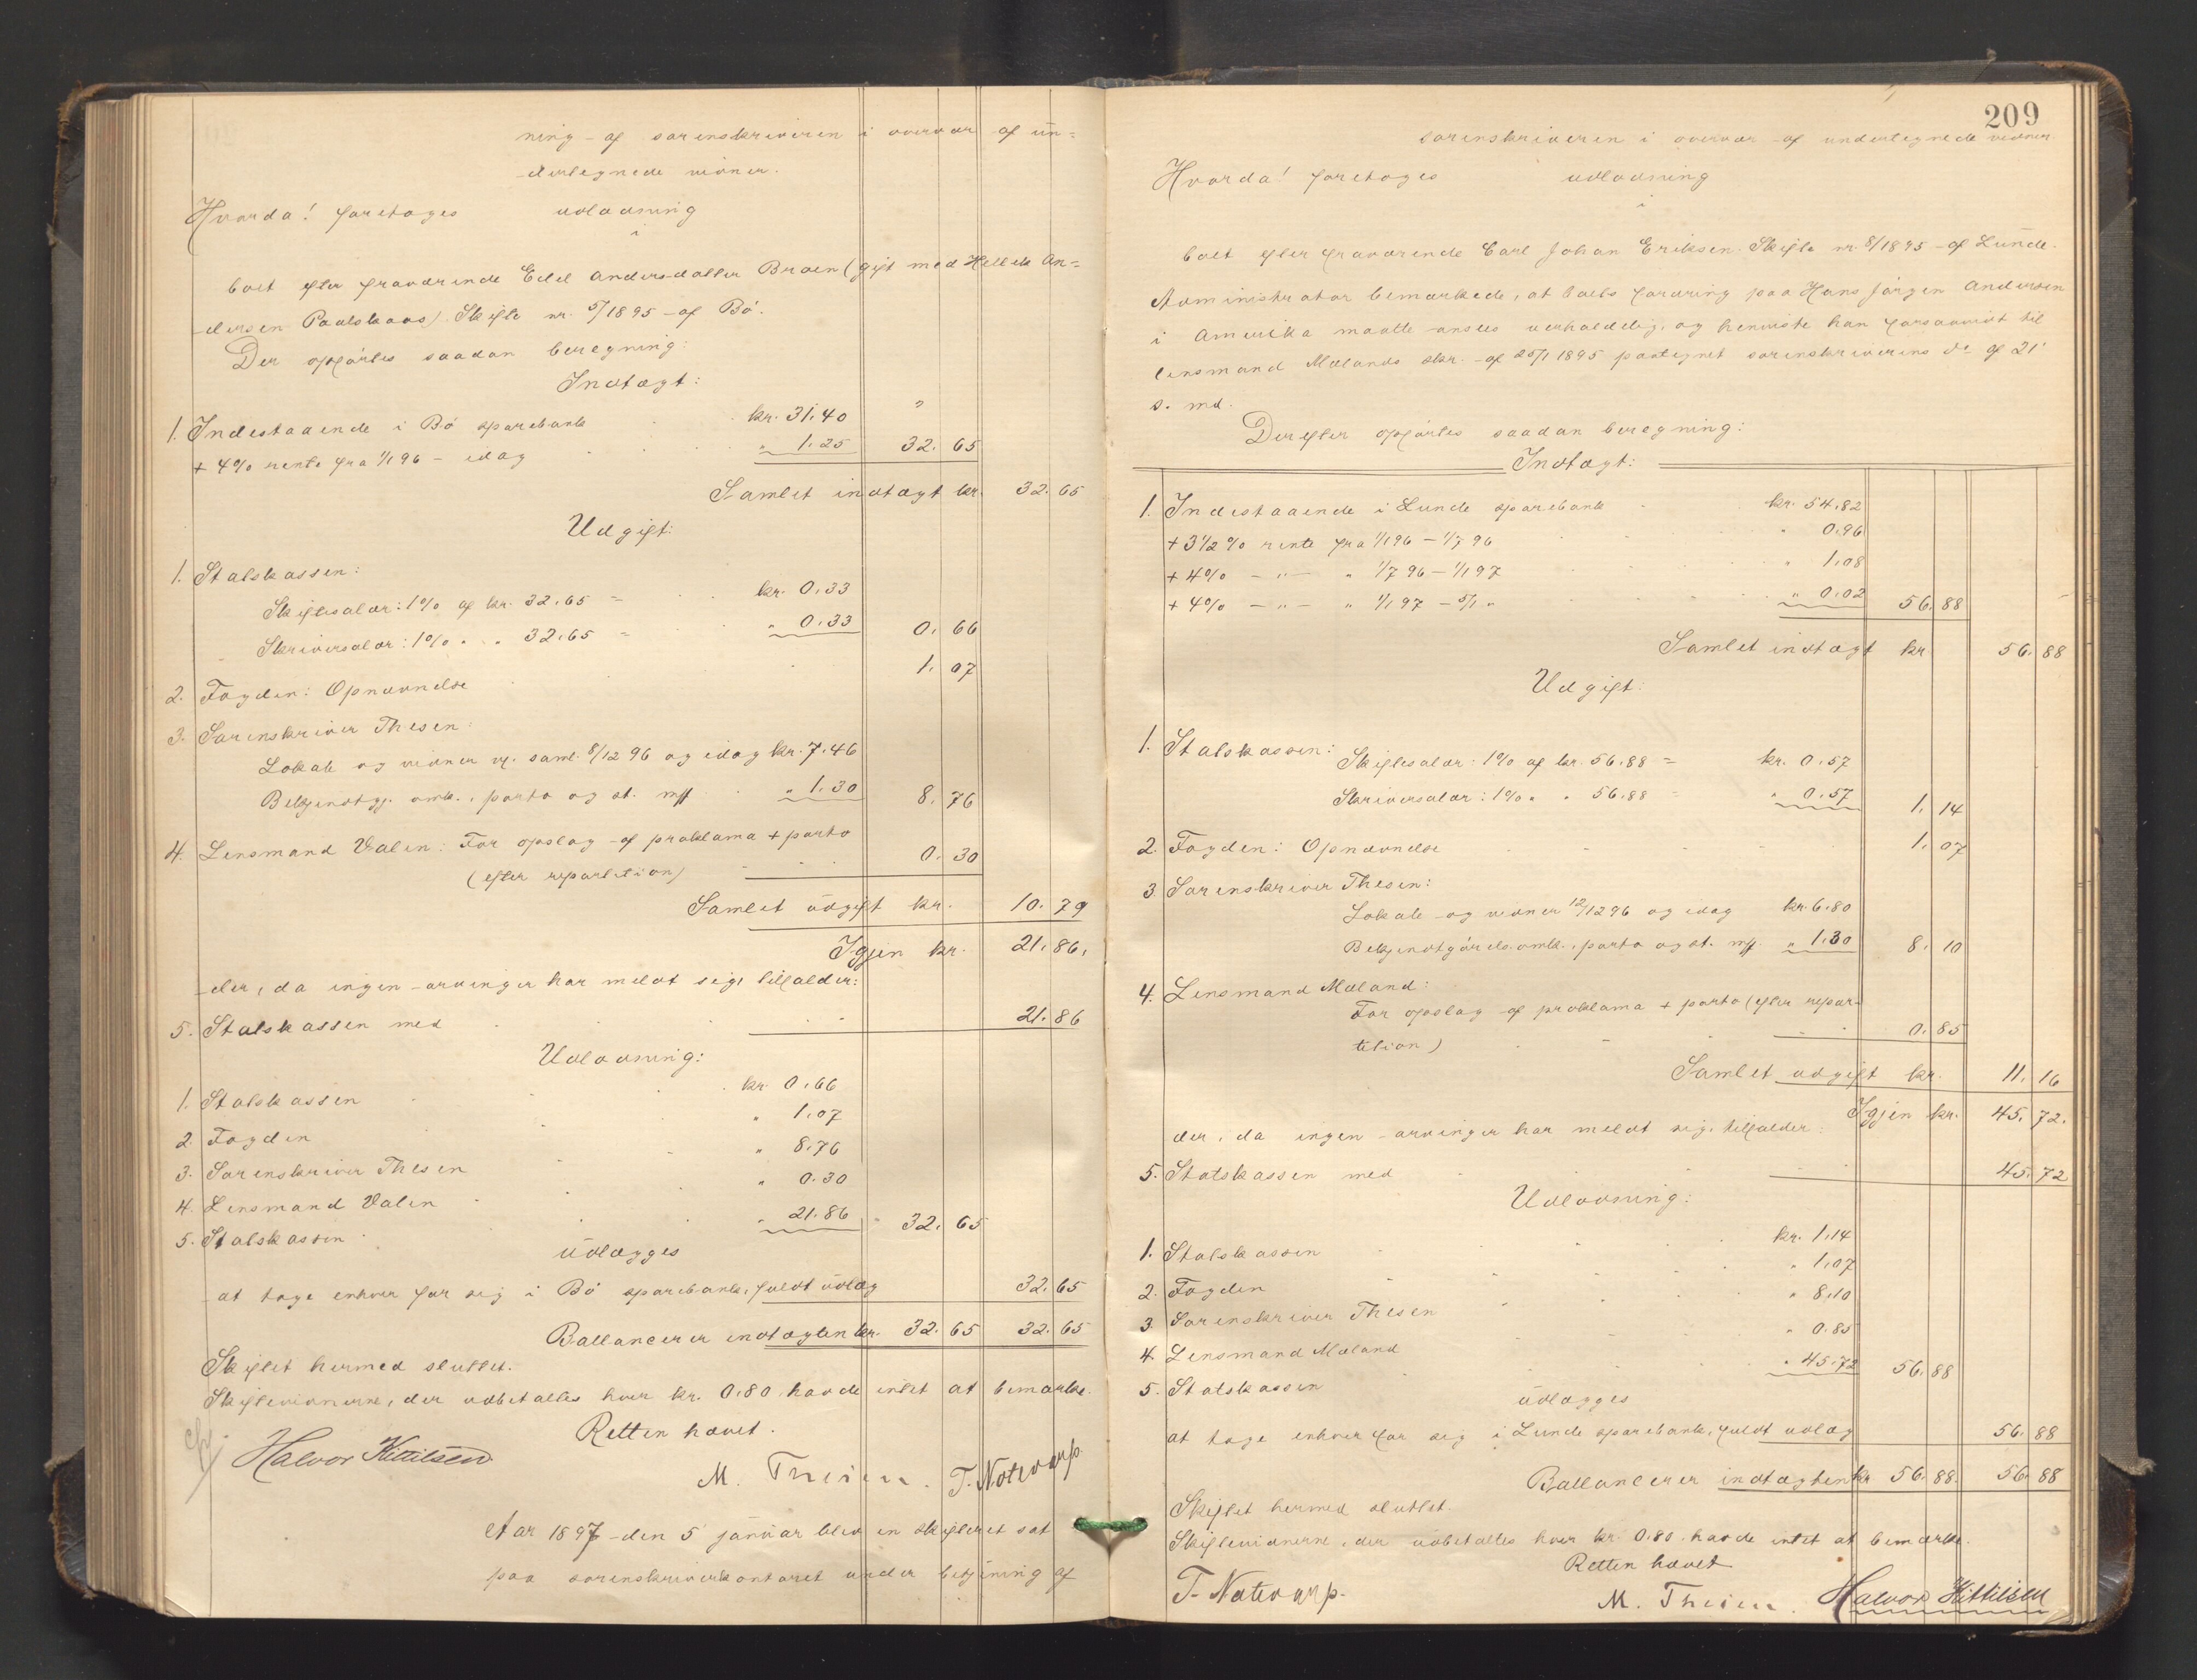 ning af sorenskriveren i overvær af un=
dertegnede vidner.
Hvorda! foretoges udlodning
i
boet efter fraværende Edel Andersdatter Broen (gift med Hellek An=
dersen Paalskaas) Skifte nr. 5/1895 af Bö.
Der opförtes saadan beregning:
Indtægt:
1. Indestaaende i Bö sparebank kr. 31.40 "
+ 4% rente fra 1/1 96 - idag " 1.25 32. 65
Samlet indtægt kr. 32. 65
Udgift:
1. Statskassen:
Skiftesalær: 1% af kr. 32.65 = kr. 0.33
Skriversalær: 1% " " 32.65 = " 0.33 0. 66
2. Fogden: Opnævnelse 1. 07
3. Sorenskriver Thesen:
Lokale og vidner v. saml. 8/12 96 og idag kr. 7.46
Bekjendtgj. omk., porto og st. mp " 1.30 8. 76
4. Lensmand Valen: For opslag af proklama + porto
(efter repartition) 0. 30
Samlet udgift kr. 10. 79
Igjen kr. 21. 86,
der, da ingen arvinger har meldt sig, tilfalder:
5. Statskassen med 21. 86
Udlodning:
1. Statskassen kr. 0.66
2. Fogden " 1.07
3. Sorenskriver Thesen " 8.76
4. Lensmand Valen " 0.30
5. Statskassen " 21.86 32. 65
udlægges
at tage enhver for sig i Bö sparebank, fuldt udlæg 32. 65
Ballancerer indtægten kr. 32. 65 32. 65
Skiftet hermed sluttet.
Skiftevidnerne, der udbetaltes hver kr. 0.80 havde intet at bemærke.
Retten hævet.
Halvor Kittilsen M. Thesen. T. Notevarp
Aar 1897 den 5 januar blev en skifteret sat
paa sorenskriverkontoret under betjening af
209
sorenskriveren i overvær af undertegnede vidner
Hvorda! foretoges udlodning
i
boet efter fraværende Carl Johan Eriksen. Skifte nr. 8/1895 af Lunde.
Administrator bemærkede, at boets fordring paa Hans Jörgen Andersen
i Amerika maatte ansees uerholdelig, og henviste han forsaavidt til
lensmand Mælands skr. af 25/1 1895 paategnet sorenskriverens do af 21'
s. md.
Derefter opförtes saadan beregning:
Indtægt:
1. Indestaaende i Lunde sparebank kr. 54.82
+ 3 1/2 % rente fra 1/1 96 - 1/7 96 " 0.96
+ 4% - " - " 1/7 96 - 1/1 97 " 1.08
+ 4% - " - " 1/1 97 - 5/1 " " 0.02 56. 88
Samlet indtægt kr. 56. 88
Udgift:
1. Statskassen:
Skiftesalær: 1% af kr. 56.88 = kr. 0.57
Skriversalær: 1% " " 56.88 = " 0.57 1. 14
2. Fogden: Opnævnelse 1. 07
3. Sorenskriver Thesen:
Lokale og vidner 12/12 96 og idag kr. 6.80
Bekjendtgörels. omk., porto og st. mp. " 1.30 8. 10
4. Lensmand Mæland:
For opslag af proklama + porto (efter repar-
tition) 0. 85
Samlet udgift kr. 11. 16
Igjen kr. 45. 72.
der, da ingen arvinger har meldt sig, tilfalder:
5. Statskassen med 45. 72
Udlodning:
1. Statskassen kr. 1.14
2. Fogden " 1.07
3. Sorenskriver Thesen " 8.10
4. Lensmand Mæland " 0.85
5. Statskassen " 45.72 56. 88
udlægges
at tage enhver for sig i Lunde sparebank, fuldt udlæg 56. 88
Ballancerer indtægten kr. 56. 88. 56. 88
Skiftet hermed sluttet.
Skiftevidnerne, der udbetaltes hver kr. 0.80. havde intet at bemærke.
Retten hævet
T. Notevarp. M. Thesen. Halvor Kittilsen